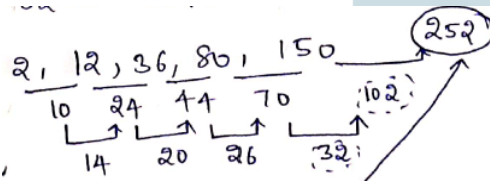 2, 12, 36, 80, 150 252
10 24 44 70 102
14 20 26 32